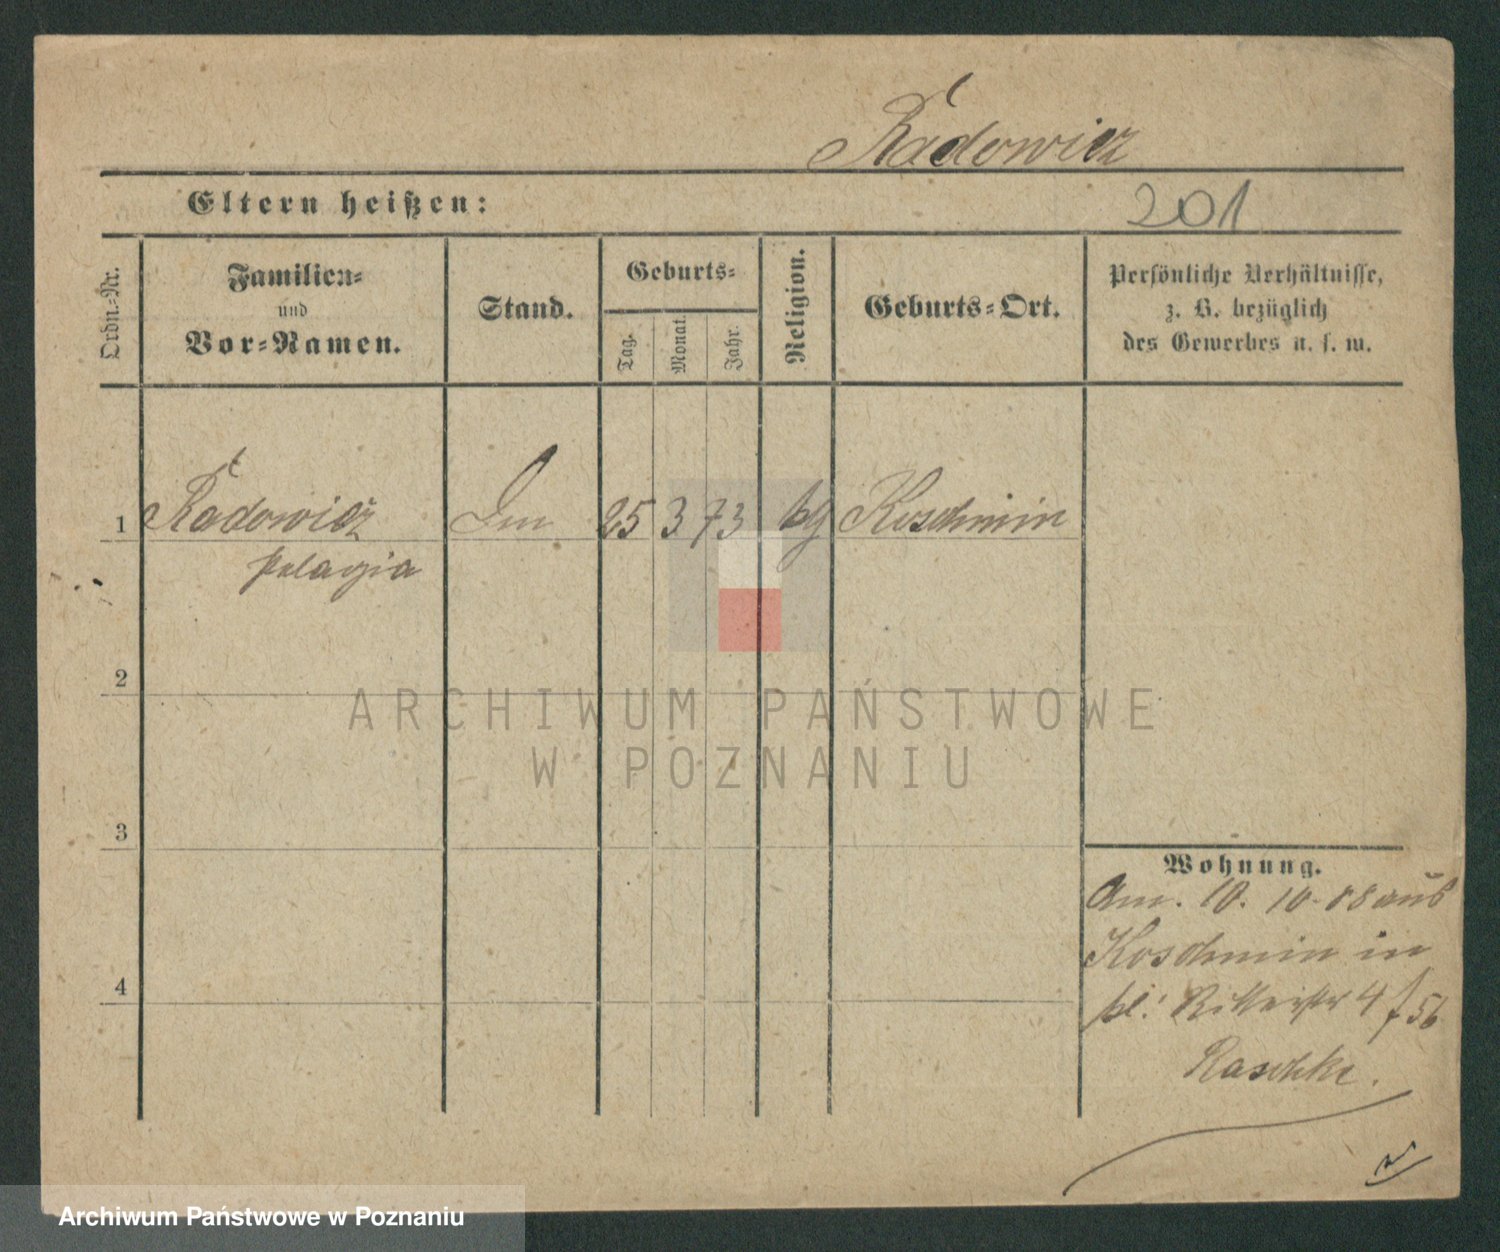 Radowicz
Eltern heißen:
201
Ordn.-Nr.
Familien-
und
Vor-Namen.
Stand.
Geburts-
Tag.
Monat.
Jahr.
Religion.
Geburts-Ort.
Persönliche Verhältnisse,
z. B. bezüglich
des Gewerbes u. s. w.
1 Radowicz 25 3 73 Koschmin
Pelagia
2
ARCHIWUM PAŃSTWOWE
W POZNANIU
3
Wohnung.
Am. 10. 10. 88 aus
Koschmin in
4
bl. Ritterstr 4 f 56
Raschke.
Archiwum Państwowe w Poznaniu